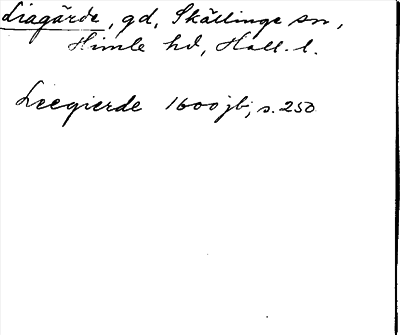 Liagärde, gd, Skällinge sn,
Himle hd, Hall. l.
Leegierde 1600 jb, s. 250